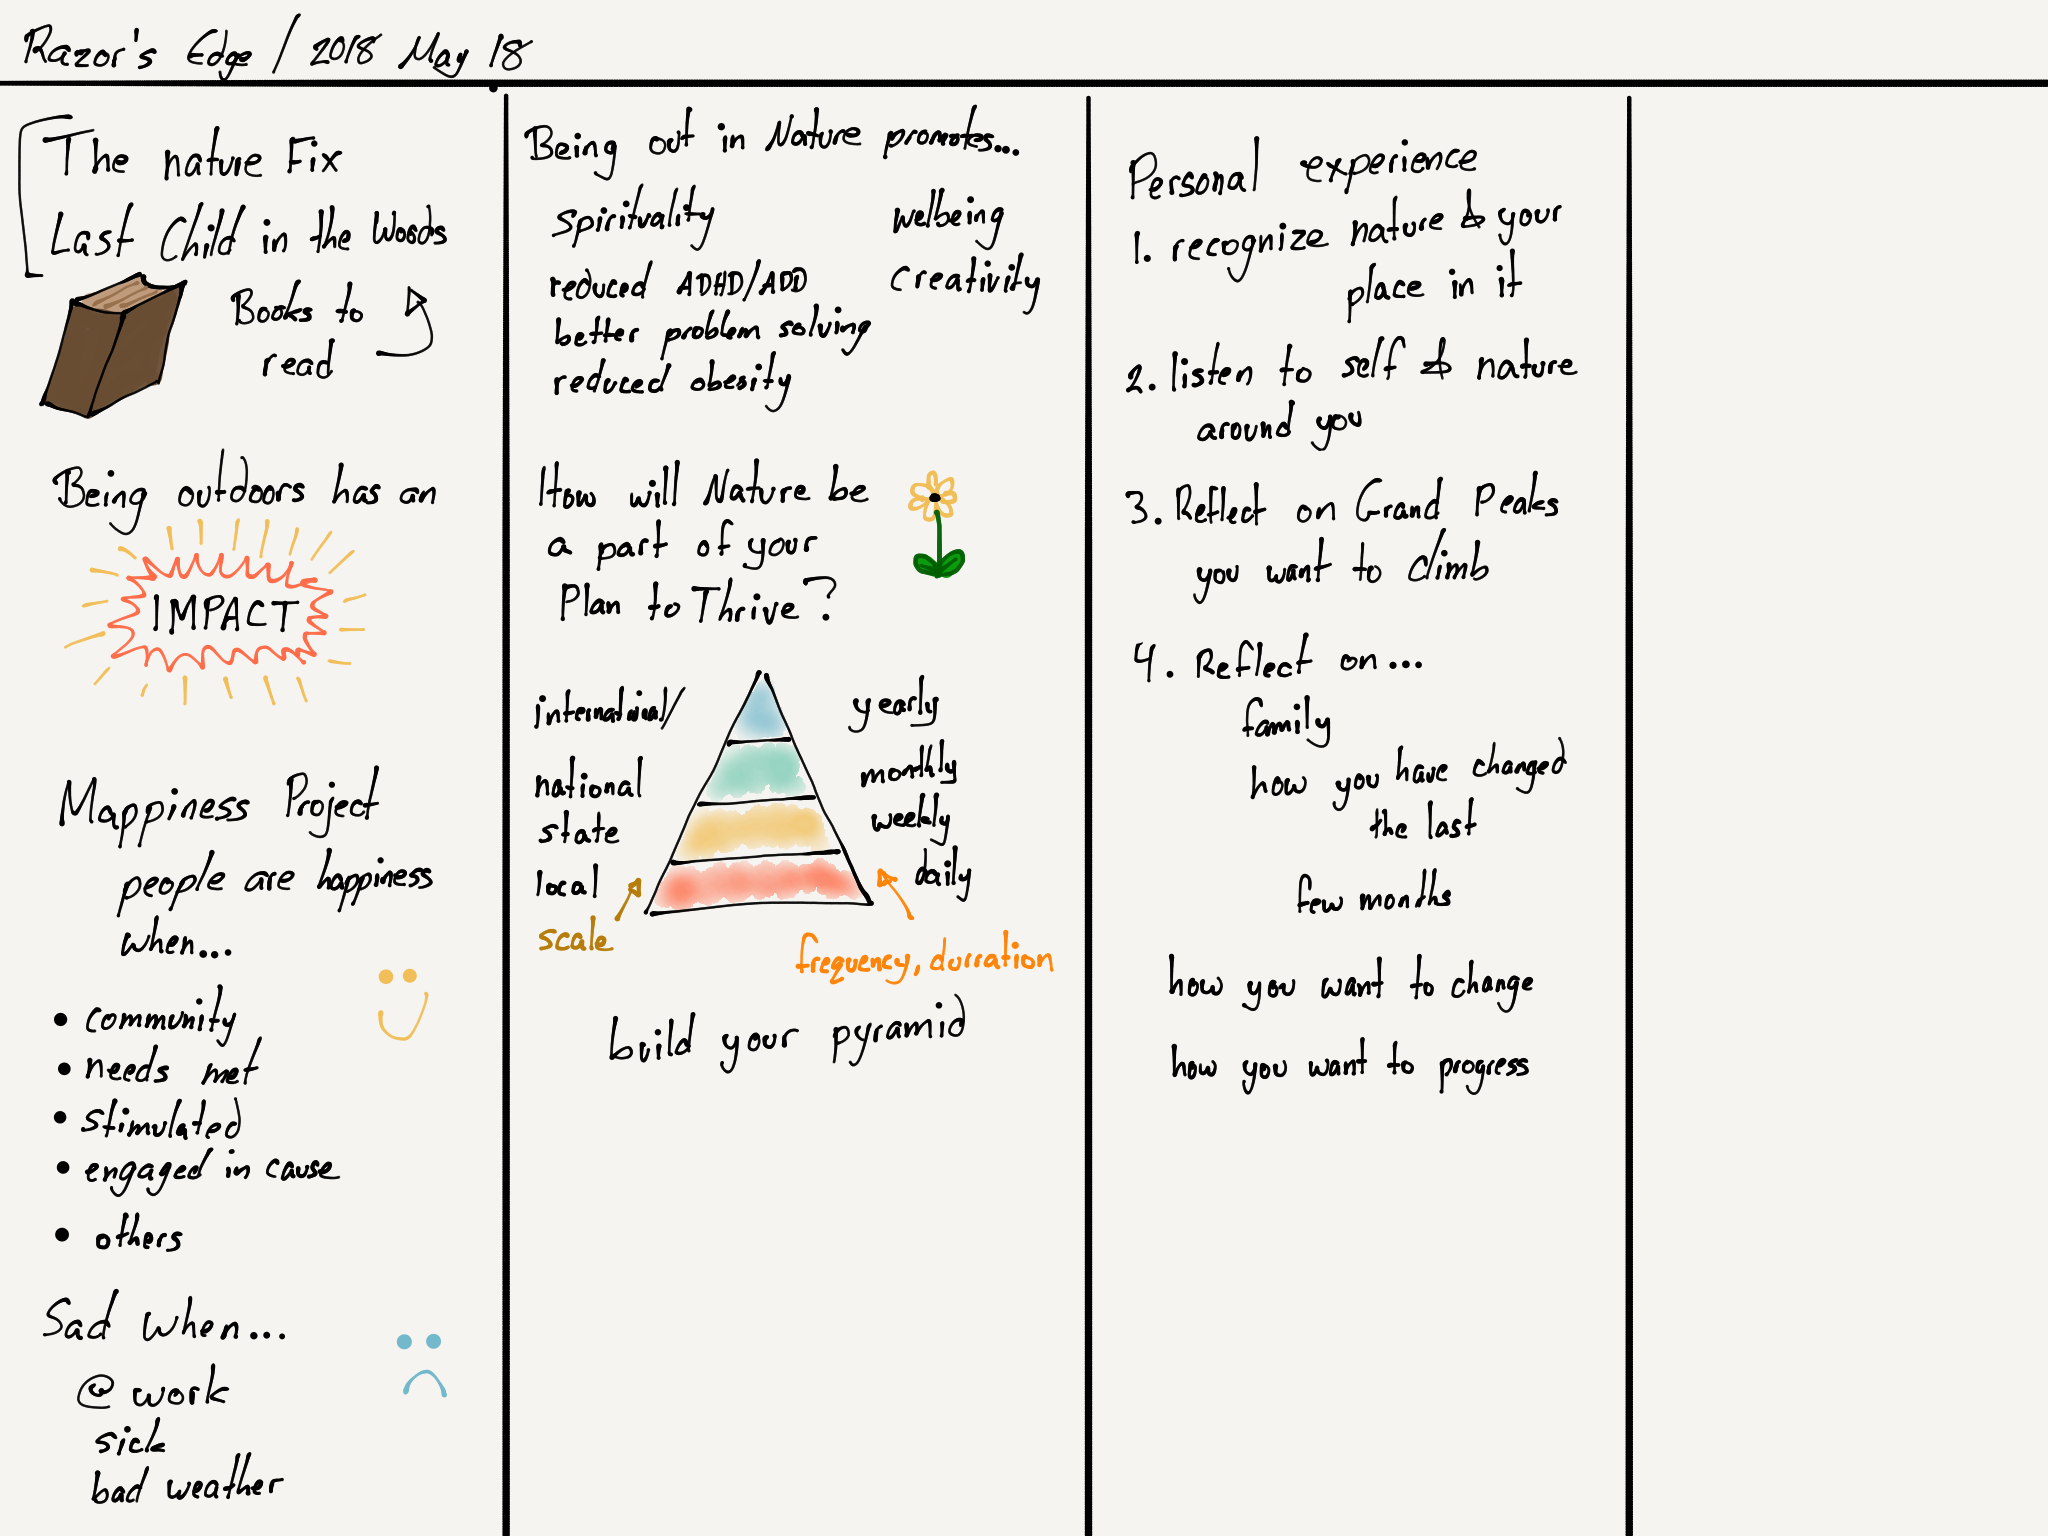 Razor's Edge / 2018 May 18
The nature Fix
Last Child in the Woods
Books to
read
Being outdoors has an
IMPACT
Mappiness Project
people are happiness
when...
• community
• needs met
• stimulated
• engaged in cause
• others
Sad when...
@ work
sick
bad weather
Being out in Nature promotes...
spirituality
reduced ADHD/ADD
better problem solving
reduced obesity
welbeing
creativity
How will Nature be
a part of your
Plan to Thrive?
international/
national
state
local
scale
yearly
monthly
weekly
daily
frequency, durration
build your pyramid
Personal experience
1. recognize nature & your
place in it
2. listen to self & nature
around you
3. Reflect on Grand Peaks
you want to climb
4. Reflect on...
family
how you have changed
the last
few months
how you want to change
how you want to progress